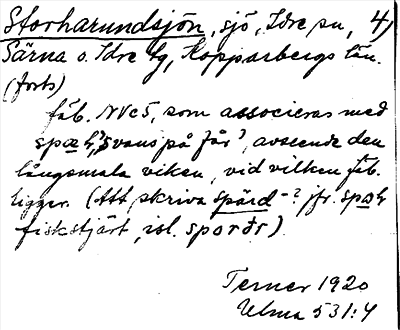 Storharundsjön, sjö, Idre sn, 4)
Särna o. Idre tg, Kopparbergs län.
(forts)
fäb. NV c 5, som associeras med
'svans på får', avseende den
långsmala viken, vid vilken fäb.
ligger. (Att skriva Spärd-? jfr.
fiskstjärt, isl. sporðr).
Terner 1920
Ulma 531:4